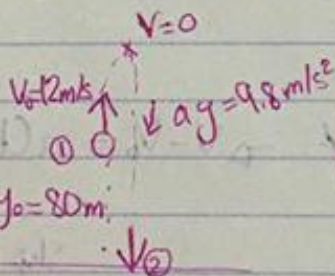 V=0
V₀=12m/s
ag=9.8m/s²
①
y₀=80m
②